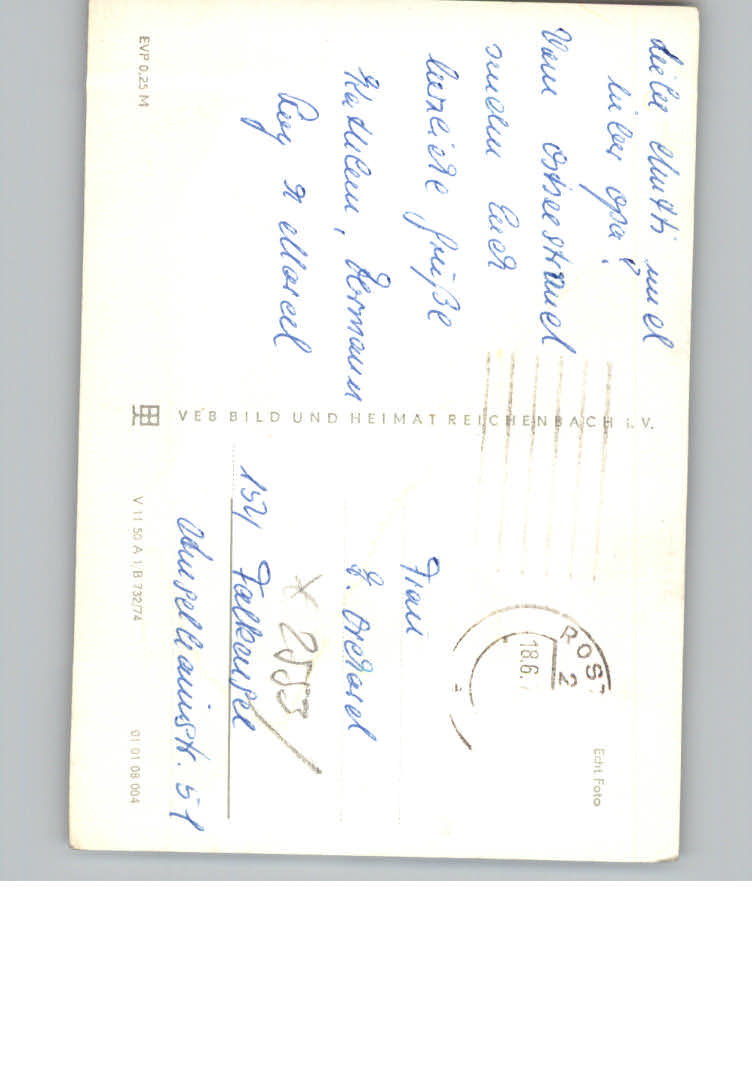 Liebe Mutti und
lieber Opa!
Vom Ostseestrand
senden Euch
herzliche Grüße
Kathleen, Hermann
Roy & Marcel
EVP 0,25 M
VEB BILD UND HEIMAT REICHENBACH i. V.
V 11 50 A 1 B 732/74
01 01 08 004
Echt Foto
ROST
2
18.6.
Frau
G. Orchard
x 2553
154 Falkensee
Anselhainstr. 51